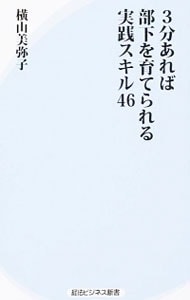 3分あれば
部下を育てられる
実践スキル46
横山美弥子
経法ビジネス新書